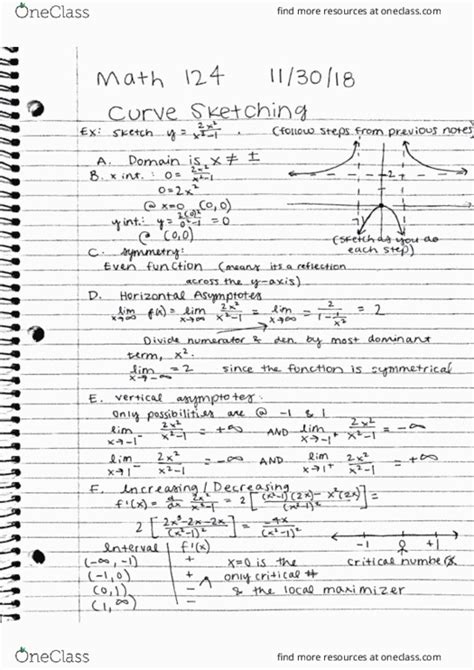 OneClass
find more resources at oneclass.com
Math 124 11/30/18
Curve Sketching
Ex: sketch y = 2x²/x²-1. (follow steps from previous notes)
A. Domain is x ≠ ±
B. x int.: 0 = 2x²/x²-1
0=2x²
@ x=0, (0,0)
y int.: y = 2(0)²/0²-1 = 0
@ (0,0)
2
(sketch as you do each step)
C. symmetry:
Even function (means its a reflection
across the y-axis)
D. Horizontal Asymptotes
lim x→∞ f(x) = lim x→∞ 2x²/x²-1 = lim x→∞ 2/1-1/x² = 2
Divide numerator & den. by most dominant
term, x².
lim x→-∞ = 2 since the function is symmetrical
E. vertical asymptotes:
only possibilities are @ -1 & 1
lim x→-1⁻ 2x²/x²-1 = +∞ AND lim x→-1⁺ 2x²/x²-1 = -∞
lim x→1⁻ 2x²/x²-1 = -∞ AND lim x→1⁺ 2x²/x²-1 = +∞
F. Increasing/Decreasing
f'(x) = d/dx 2x²/x²-1 = 2[(x²-1)(2x) - x²(2x)/(x²-1)²] =
2[2x³-2x-2x/(x²-1)²] = -4x/(x²-1)²
-1 0 +1
Interval f'(x) critical numbers
(-∞, -1) + x=0 is the
(-1, 0) + only critical #
(0, 1) - & the local maximizer
(1, ∞) -
OneClass
find more resources at oneclass.com